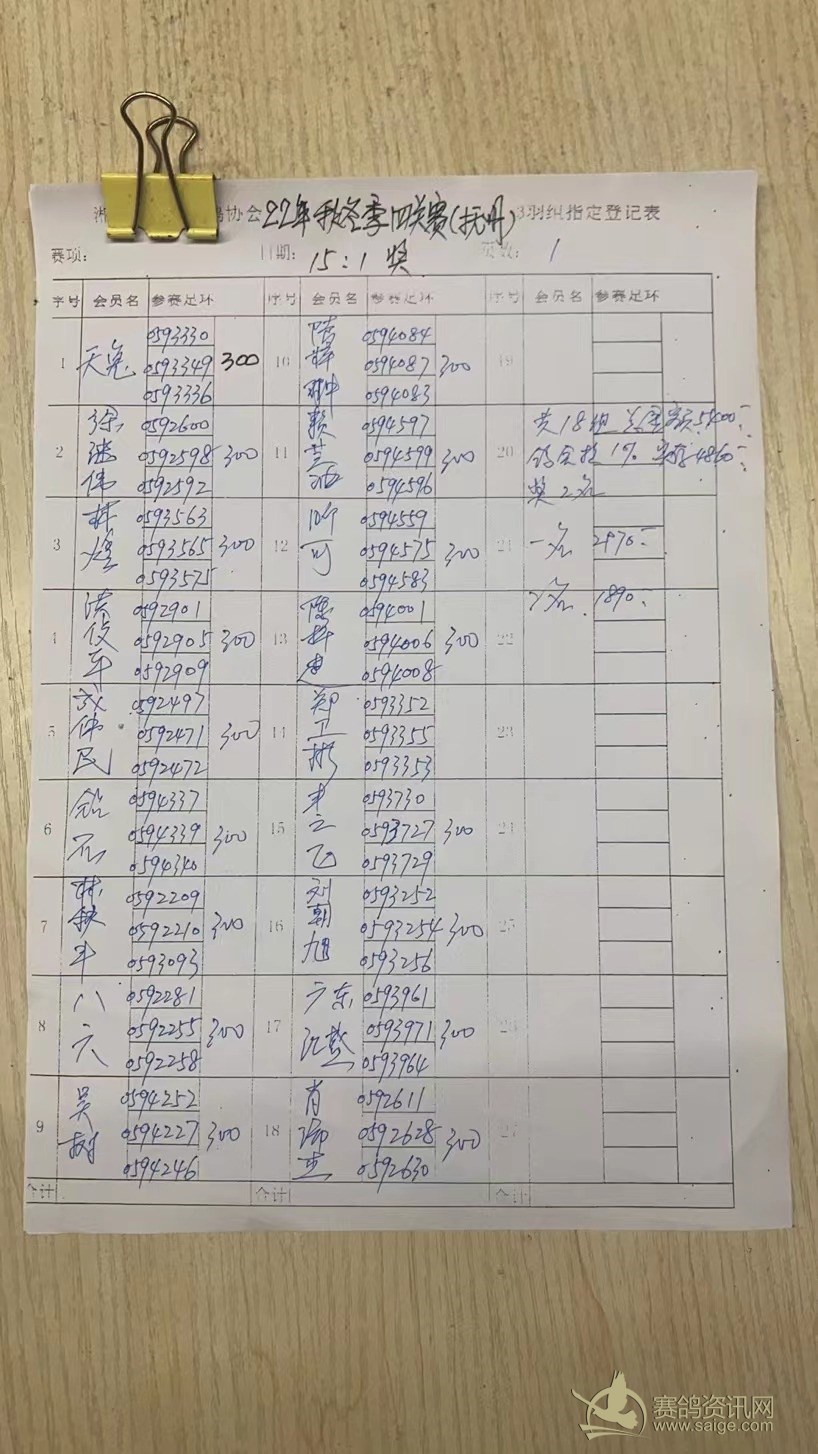 协会22年秋冬季四关赛(抚州)3羽组指定登记表
赛项: 日期: 15:1奖 页数: 1
序号 会员名 参赛足环 序号 会员名 参赛足环 序号 会员名 参赛足环
1 天兔 0593330 0593349 0593336 300
2 徐 伟 0592600 0592598 0592592 300
3 林煌 0593563 0593565 0593575 300
4 洪俊军 0592901 0592905 0592909 300
5 伟民 0592497 0592471 0592472 300
6 0594337 0594339 0594340 300
7 林 0592209 0592210 0593093 300
8 八六 0592281 0592255 0592258 300
9 吴树 0594252 0594227 0594246 300
合计
10 0594084 0594087 0594083 300
11 0594597 0594599 0594596 300
12 可 0594559 0594575 0594583 300
13 陈 0594001 0594006 0594008 300
14 郑卫彬 0593352 0593355 0593353
15 飞 0593730 0593727 0593729 300
16 刘朝旭 0593252 0593254 0593256 300
17 广东 0593961 0593971 0593964 300
18 肖 0592611 0592628 0592630 300
合计
19
20 共18组 总金额5400
4860
奖2名
21 一名 2970
22 2名 1890
23
24
25
26
27
合计
赛鸽资讯网
www.saige.com